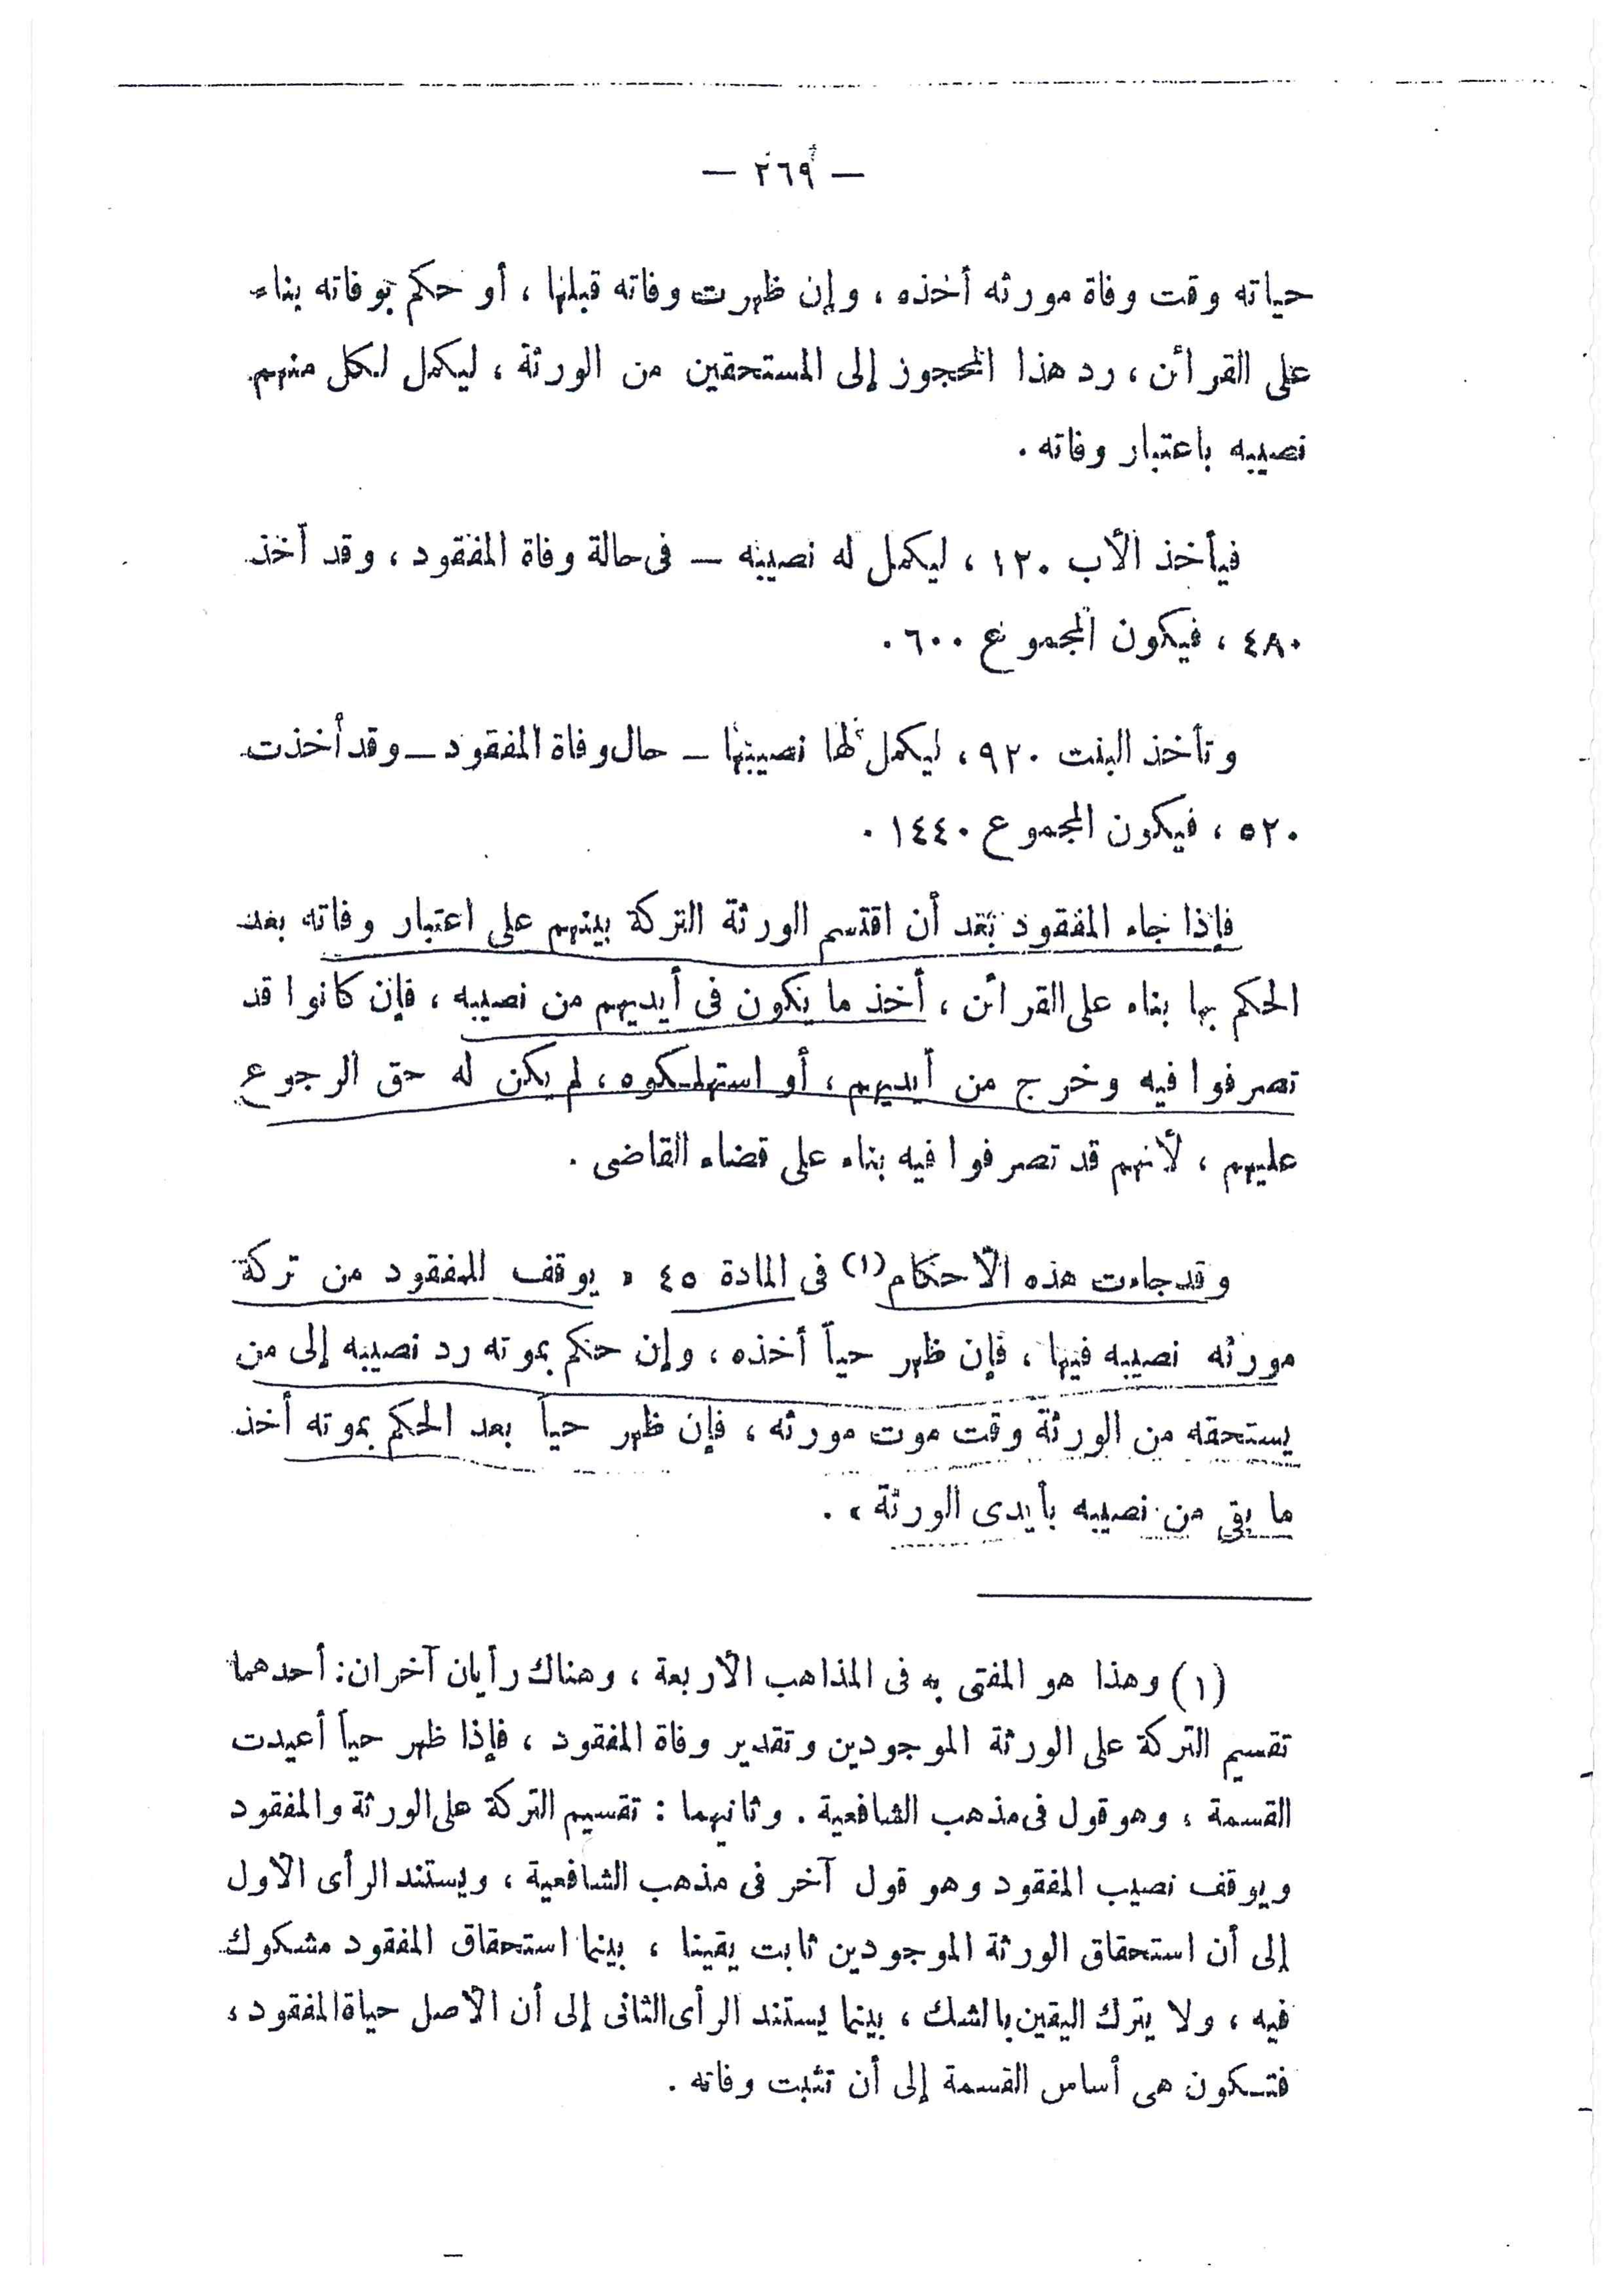 — ٢٦٩ —
حياته وقت وفاة مورثه أخذه ، وإن ظهرت وفاته قبلها ، أو حكم بوفاته بناء
على القرائن ، رد هذا المحجوز إلى المستحقين من الورثة ، ليكمل لكل منهم
نصيبه باعتبار وفاته .
فيأخذ الأب ١٢٠ ، ليكمل له نصيبه — فى حالة وفاة المفقود ، وقد أخذ
٤٨٠ ، فيكون المجموع ٦٠٠ .
وتأخذ البنت ٩٢٠ ، ليكمل لها نصيبها — حال وفاة المفقود — وقد أخذت
٥٢٠ ، فيكون المجموع ١٤٤٠ .
فإذا جاء المفقود بعد أن اقتسم الورثة التركة بينهم على اعتبار وفاته بعد
الحكم بها بناء على القرائن ، أخذ ما يكون فى أيديهم من نصيبه ، فإن كانوا قد
تصرفوا فيه وخرج من أيديهم ، أو استهلكوه ، لم يكن له حق الرجوع
عليهم ، لأنهم قد تصرفوا فيه بناء على قضاء القاضى .
وقد جاءت هذه الأحكام (١) فى المادة ٤٥ « يوقف للمفقود من تركة
مورثه نصيبه فيها ، فإن ظهر حياً أخذه ، وإن حكم بموته رد نصيبه إلى من
يستحقه من الورثة وقت موت مورثه ، فإن ظهر حياً بعد الحكم بموته أخذ
ما بقى من نصيبه بأيدى الورثة » .
(١) وهذا هو المفتى به فى المذاهب الأربعة ، وهناك رأيان آخران : أحدهما
تقسيم التركة على الورثة الموجودين وتقدير وفاة المفقود ، فإذا ظهر حياً أعيدت
القسمة ، وهو قول فى مذهب الشافعية . وثانيهما : تقسيم التركة على الورثة والمفقود
ويوقف نصيب المفقود وهو قول آخر فى مذهب الشافعية ، ويستند الرأى الأول
إلى أن استحقاق الورثة الموجودين ثابت يقينا ، بينما استحقاق المفقود مشكوك
فيه ، ولا يترك اليقين بالشك ، بينما يستند الرأى الثانى إلى أن الأصل حياة المفقود ،
فتكون هى أساس القسمة إلى أن تثبت وفاته .